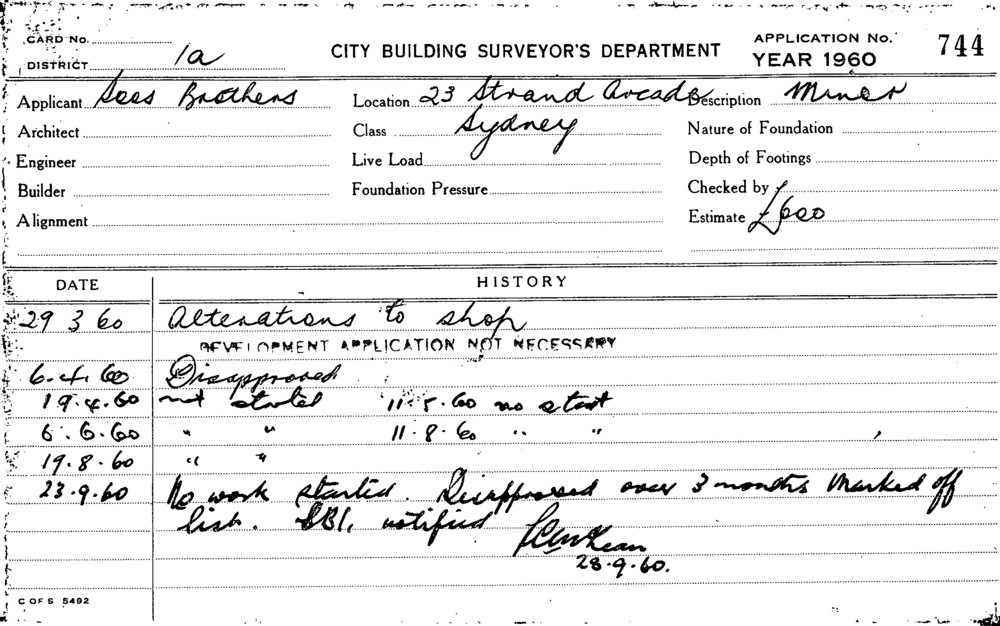 CARD No.
DISTRICT 1a
CITY BUILDING SURVEYOR'S DEPARTMENT
APPLICATION No. 744
YEAR 1960
Applicant Sees Brothers Location 23 Strand Arcade Description Minor
Architect Class Sydney Nature of Foundation
Engineer Live Load Depth of Footings
Builder Foundation Pressure Checked by
Alignment Estimate £600
DATE HISTORY
29 3 60 Alterations to shop
DEVELOPMENT APPLICATION NOT NECESSARY
6.4.60 Disapproved
19.4.60 not started 11.5.60 no start
6.6.60 " " 11.8.60 " "
19.8.60 " "
23.9.60 No work started. Disapproved over 3 months Marked off
list. notified
28.9.60.
C OF S 5492